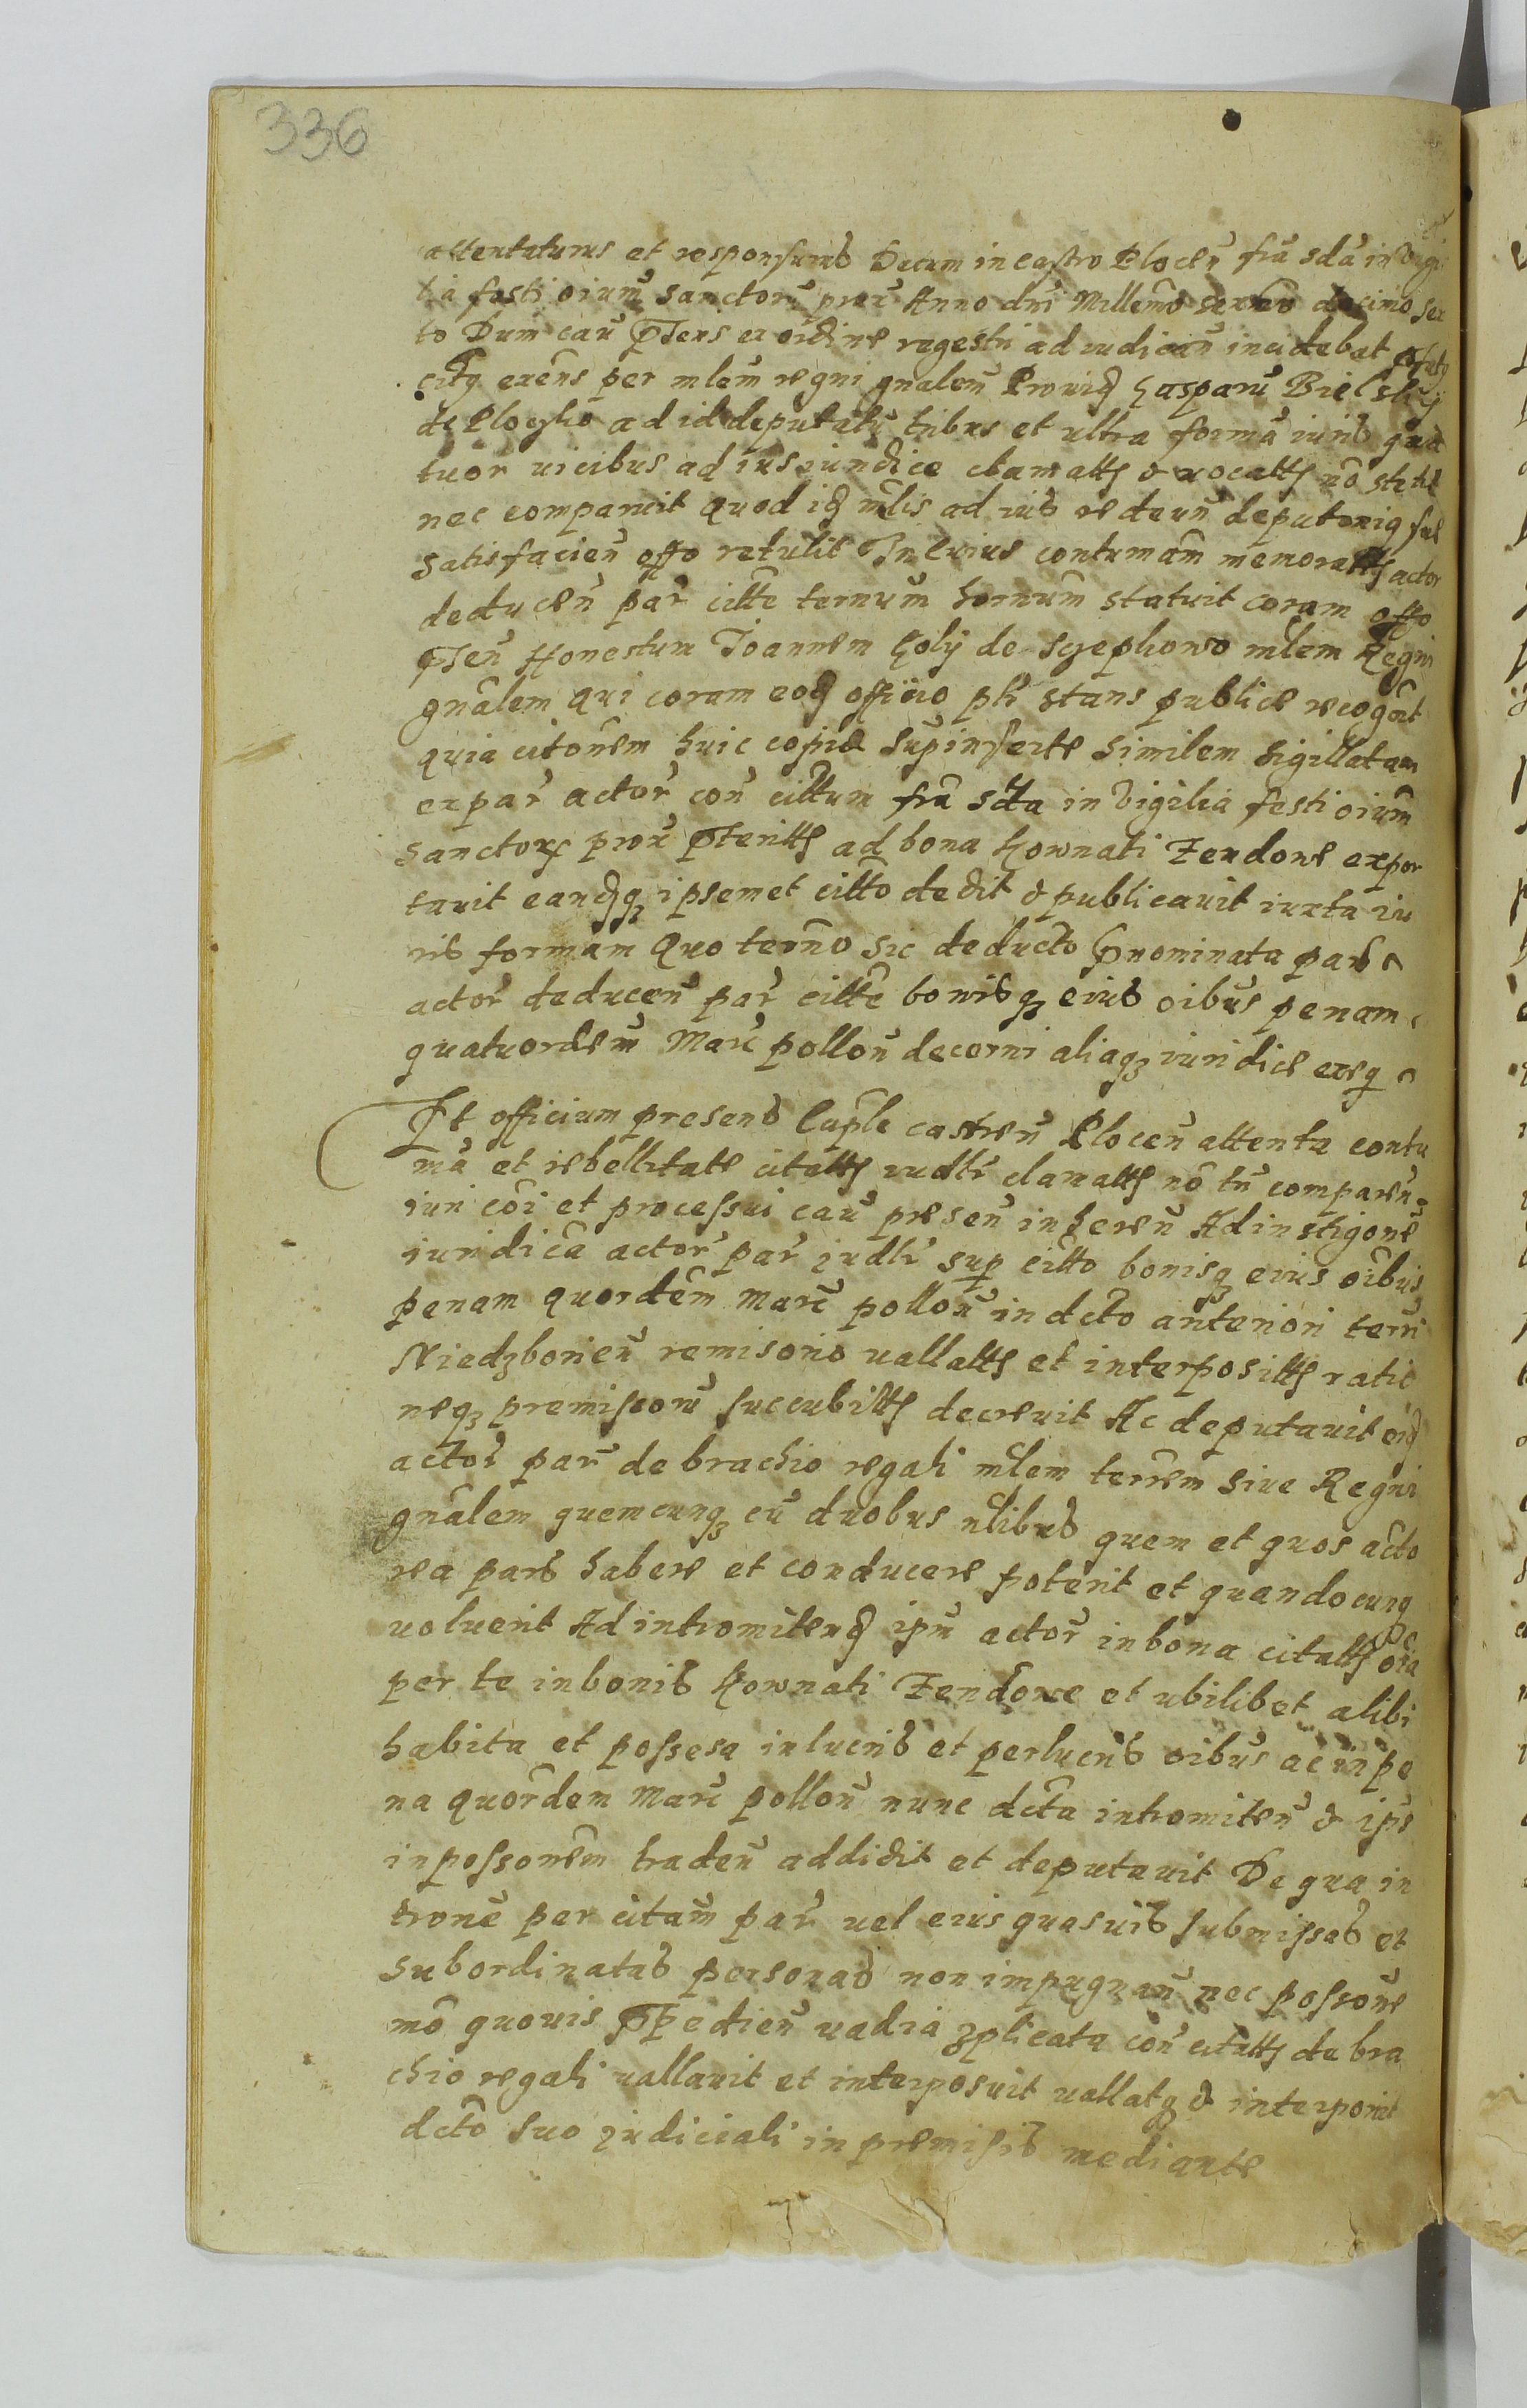 336
attentaturus et responsurus Datum in castro Plocen̄ fr̃a 2da in Vigi
lia festi oium̃ Sanctorũ prox̃ Anno dni Millemo sexmo decimo sex
to Dum cau͠ pn̄s ex ordine regestri ad iudican̄ incidebat
exens per mlem̃ regni gnalem̃ Prouid Gasparũ Bielski
de Plocsko ad id deputatũ tribus et ultra formã iuris qua
tuor uicibus ad ius iuridice clamatts & uocatts nõ stetit
nec comparuit quod id mlis ad ius redeun̄ deputoniq sue
satisfacien̄ offo retulit In cuius contumãm memoratts actor
deducen̄ par͂ citte ternum hornum statuit coram offo
pn̄ Honestum Joannem Goly de Szephowo mlem Regni
gnãlem qui coram eod officio plr̃ stans publice recogñt
quia citonem huic copie supinserte similem sigillatam
ex par͂ actor͂ con̄ cittum fr̃a 2da in Vigilia festi oium̃
Sanctorx prox̃ pteritts ad bona Kownati Zendowe expor
tauit eandqz ipsemet citto dedit & publicauit iuxta iu
ris formam Quo terño sic deducto pnominata pars
actor͂ deducen̄ par͂ citte bonisqz eius oibus penam
quatuordem̃ Marc̃ pollon̄ decerni aliaqz iuridice exeq
Et officium presens Caple castren̄ Plocen̄ attenta contu
mã et rebellitate citatts iudlr̃ clamatts nõ tñ comparen̄
iuri cõi et processui cau͠ presen̄ inheren̄ Ad instigone͂
iuridicã actor͂ par͂ iudlr̃ sup citto bonisqz eius oibus
penam quordem̃ Marc̃ pollon̄ in dcto anteriori terr̃i
Niedzborien̄ remisorio uallatts et interpositts ratio
neqz premissorũ succubitts decreuit Ac deputauit eid
actor͂ par͂ de brachio regali mlem terrem siue Regni
gnãlem quemcunqz cũ duobus nlibus quem et quos acto
rea pars habere et conducere poterit et quandocunq
uoluerit Ad intromitend ipm̃ actor͂ in bona citatts oia
per te in bonis Kownati Zendowe et ubilibet alibi
habita et possesa in lucris et perlucris oibus ac in pe
na quordem Marc̃ pollon̄ nunc dcta intromiten̄ & ips
in possonem traden̄ addidit et deputauit De qua in
trone͂ per citam̃ par͂ uel eius quasuis submissas et
subordinatas personas non impugnan̄ nec possone
mõ quouis ppedien̄ uadia plicata con̄ citatts de bra
chio regali uallauit et interposuit uallatqz & interponit
dcto suo iudiciali in premisis mediante